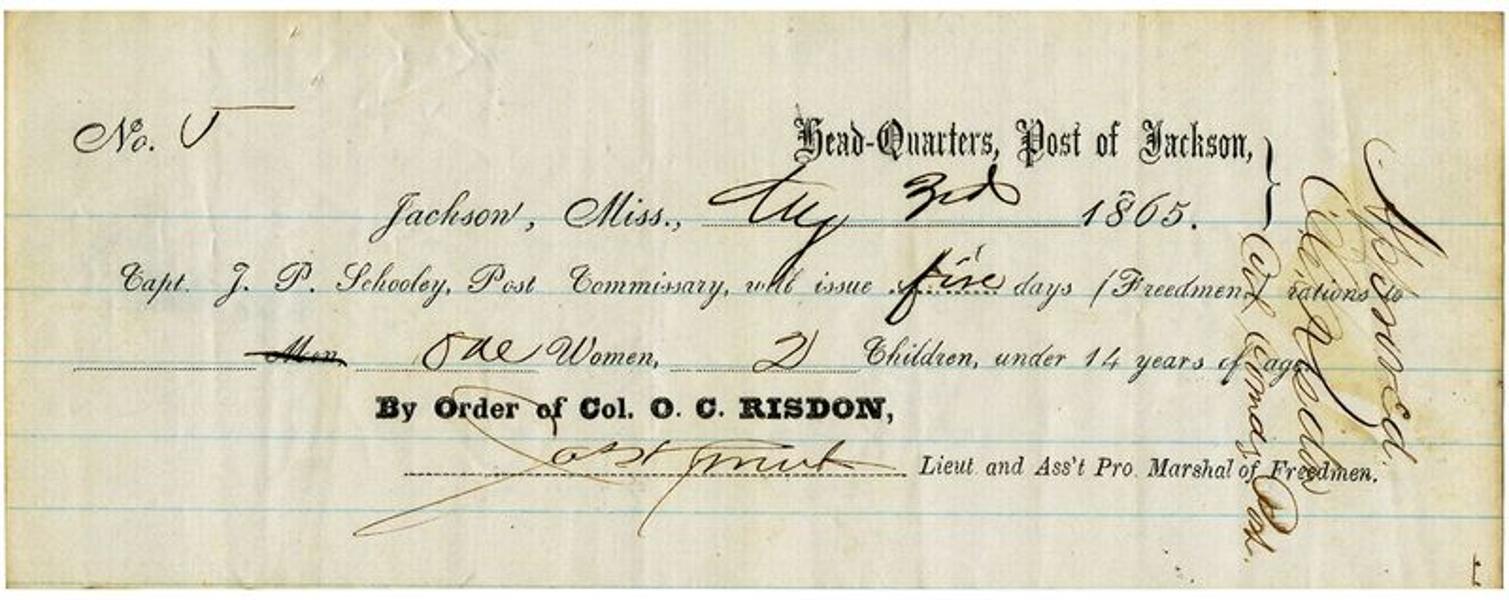 No. 5
Head-Quarters, Post of Jackson,
Jackson, Miss., Aug 3rd 1865.
Capt. J. P. Schooley, Post Commissary, will issue five days (Freedmen) rations to
Men One Women, 2 Children, under 14 years of age.
By Order of Col. O. C. RISDON,
Lieut and Ass't Pro. Marshal of Freedmen.
Approved
O C Risdon
Col Comdg Post.